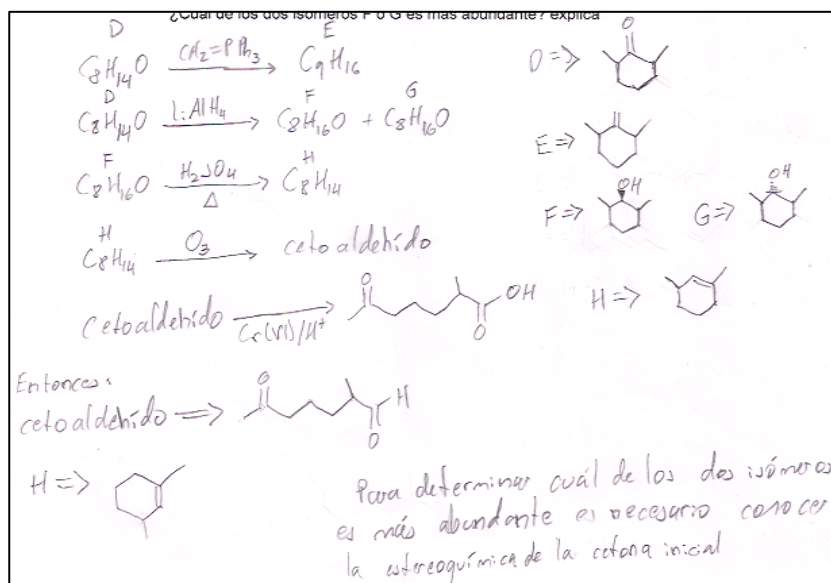 ¿Cuál de los dos isómeros F o G es más abundante? explica
D E
C8H14O CH2=PPh3 C9H16
D F G
C8H14O LiAlH4 C8H16O + C8H16O
F H
C8H16O H2SO4 Δ C8H14
H
C8H14 O3 cetoaldehído
cetoaldehído Cr(VI)/H+ O OH O
D => O
E =>
F => OH G => OH
H =>
Entonces:
cetoaldehído => O H O
H =>
Para determinar cuál de los dos isómeros
es más abundante es necesario conocer
la estereoquímica de la cetona inicial